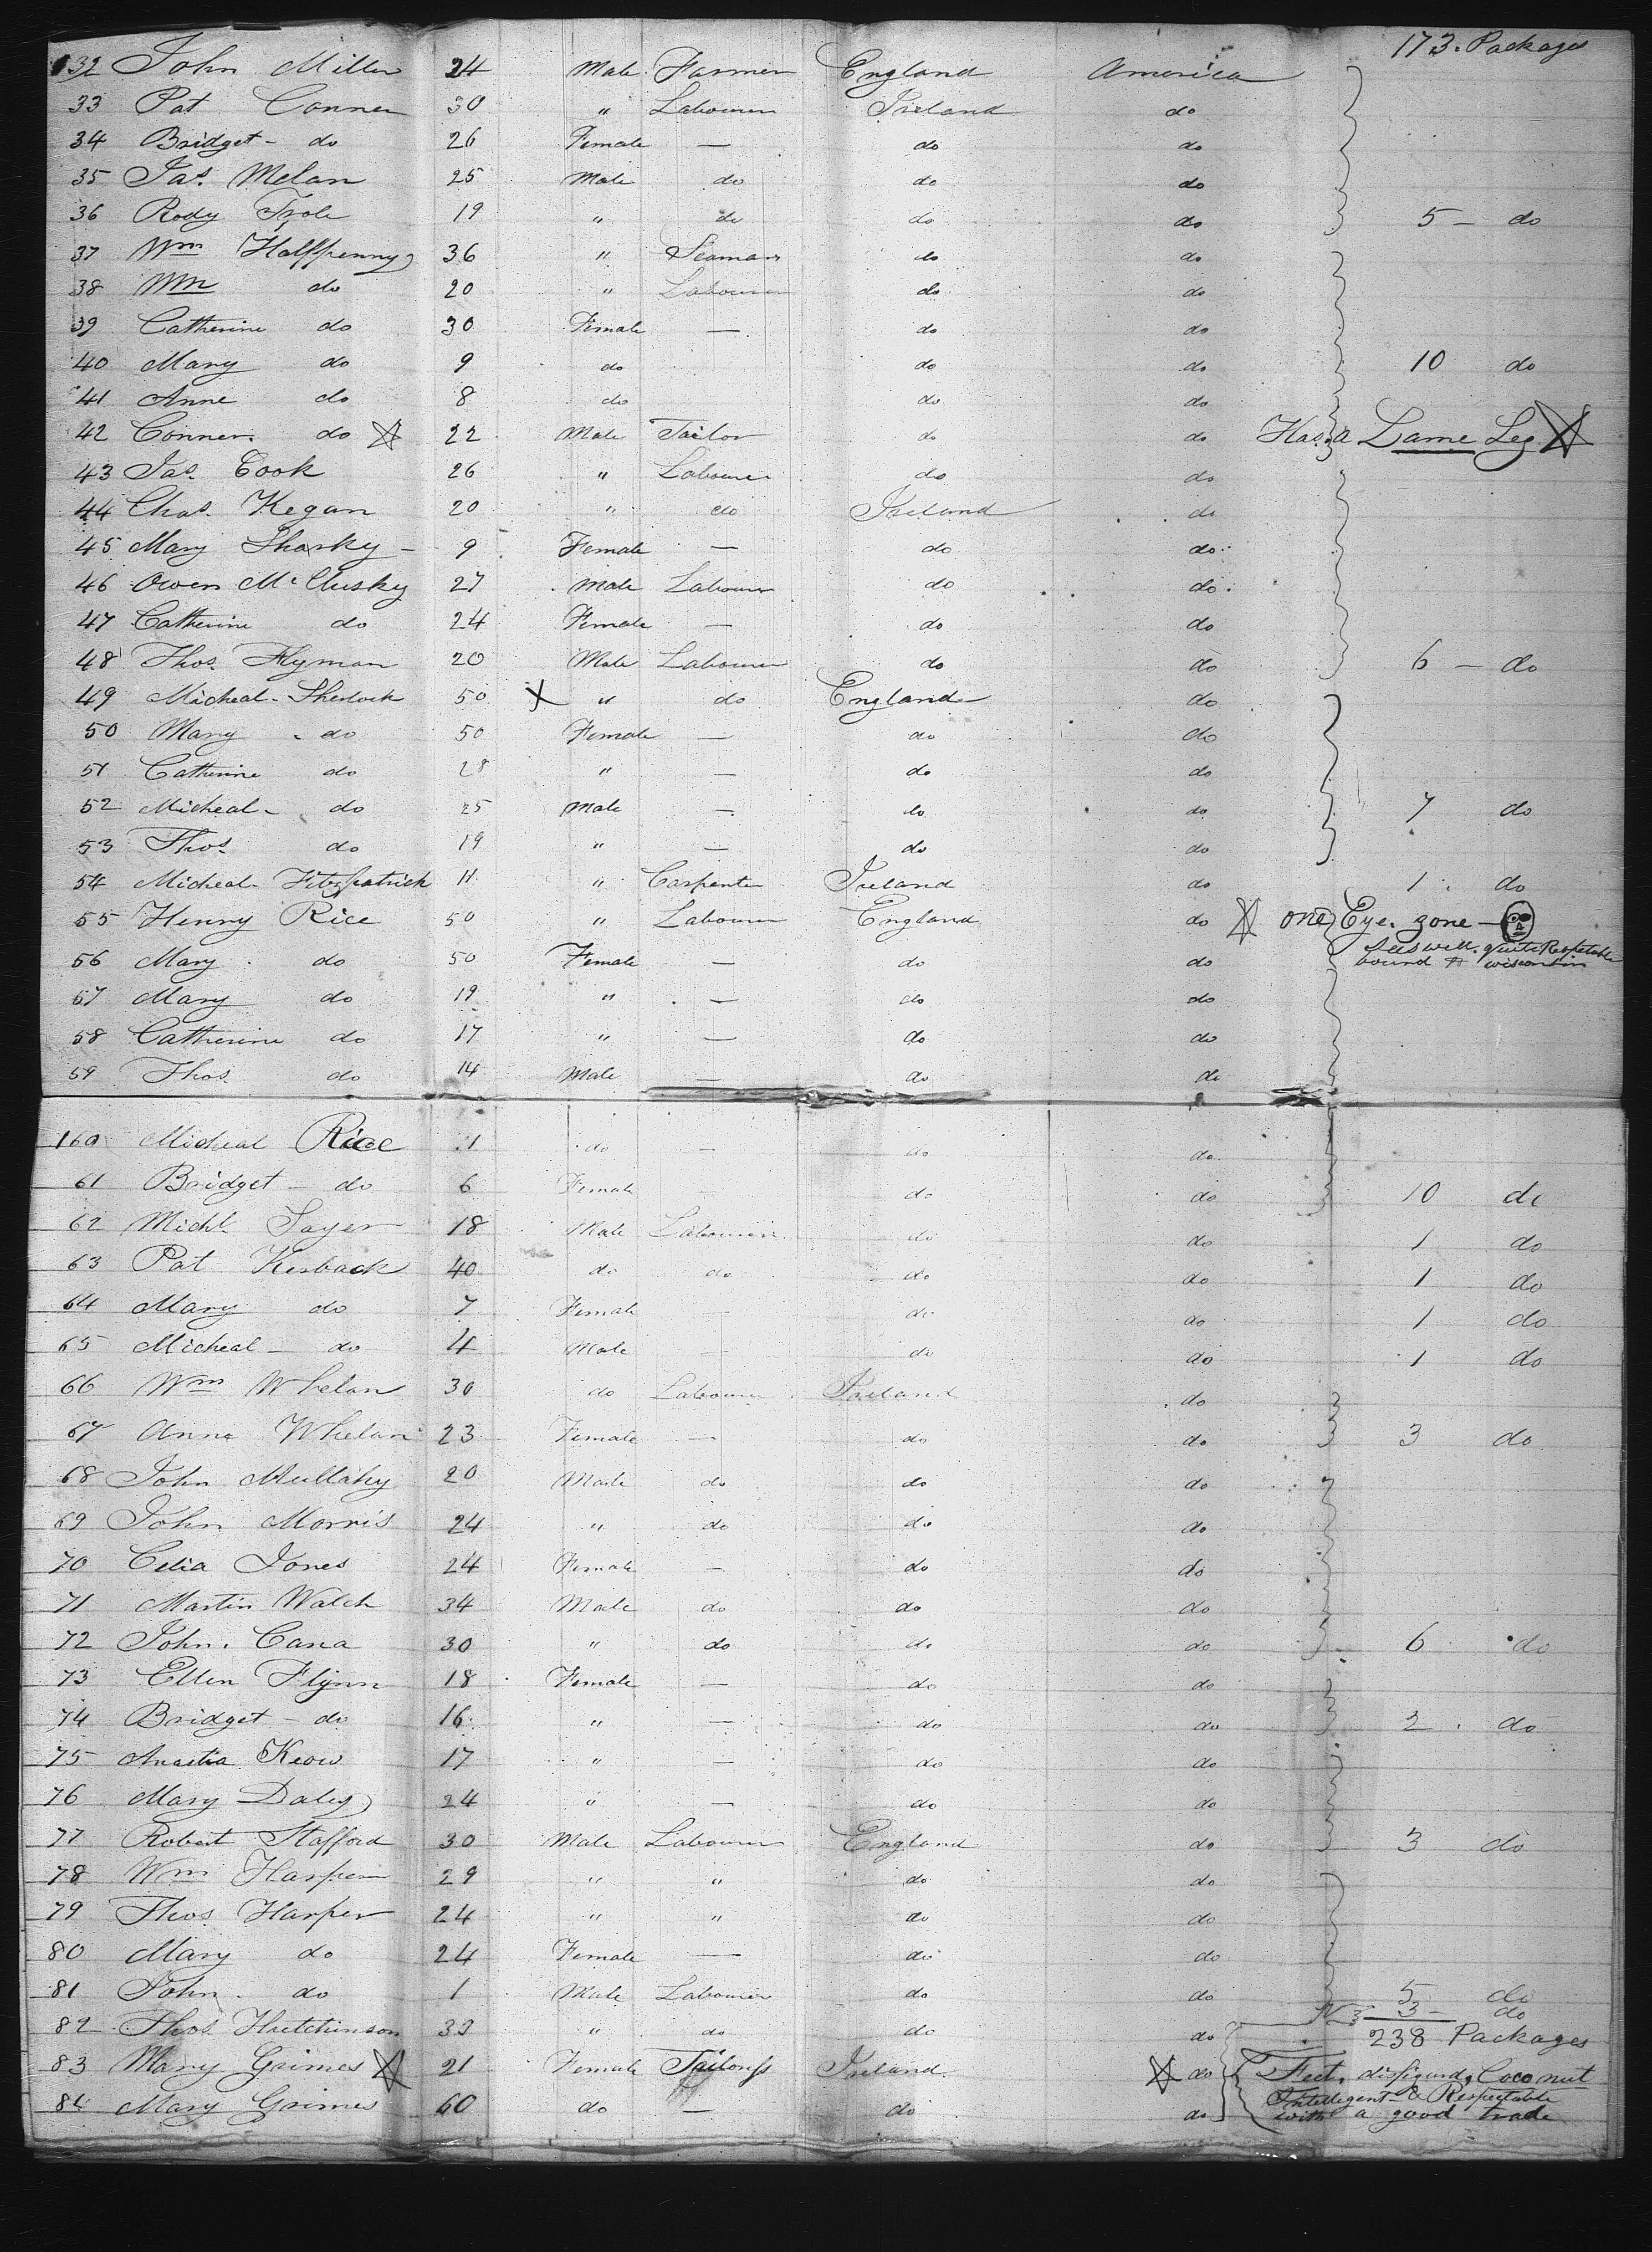 173. Packages
132 John Miller 24 Male Farmer England America
33 Pat Conner 30 " Labourer Ireland do
34 Bridget - do 26 Female — do do
35 Jas. Melan 25 Male do do do
36 Rody 19 " do do do 5 - do
37 Wm Halfpenny 36 " Seaman do do
38 Wm do 20 " Labourer do do
39 Catherine do 30 Female — do do
40 Mary do 9 do do do 10 do
41 Anne do 8 do do do
42 Conner do 22 Male Tailor do do Has a Lame Leg
43 Jas. Cook 26 " Labourer do do
44 Chas. Kegan 20 " do Ireland do
45 Mary Sharky - 9 Female — do do
46 Owen McClusky 27 Male Labourer do do
47 Catherine do 24 Female — do do
48 Thos. Flyman 20 Male Labourer do do 6 - do
49 Micheal - Sherlock 50 X " do England do
50 Mary do 50 Female — do do
51 Catherine do 28 " — do do
52 Micheal - do 25 Male — do do 7 do
53 Thos. do 19 " — do do
54 Micheal - Fitzpatrick 11 " Carpenter Ireland do 1 do
55 Henry Rice 50 " Labourer England do one Eye. gone -
56 Mary do 50 Female — do do sees well. quite Respetable
bound to wisconsin
57 Mary do 19 " — do do
58 Catherine do 17 " — do do
59 Thos. do 14 Male — do do
160 Micheal Rice 11 do — do do
61 Bridget - do 6 Female — do do 10 do
62 Michl. Sayer 18 Male Labourer do do 1 do
63 Pat Kerback 40 do do do do 1 do
64 Mary do 7 Female — do do 1 do
65 Micheal - do 4 Male — do do 1 do
66 Wm Whelan 30 do Labourer Ireland do
67 Anne Whelan 23 Female — do do 3 do
68 John Mullahy 20 Male do do do
69 John Morris 24 " do do do
70 Celia Jones 24 Female — do do
71 Martin Walch 34 Male do do do
72 John. Cana 30 " do do do 6 do
73 Ellen Flynn 18 Female — do do
74 Bridget - do 16 " — do do 2 do
75 Anastia Keow 17 " — do do
76 Mary Daley 24 " — do do
77 Robert Stafford 30 Male Labourer England do 3 do
78 Wm Harper 29 " " do do
79 Thos. Harper 24 " " do do
80 Mary do 24 Female — do do
81 John. do 1 Male Labourer do do 5 do
82 Thos. Hutchinson 33 " do do do 3 - do
238 Packages
83 Mary Grimes 21 Female Tailoress Ireland. do Feet. disfigured, Coco nut
Intelligent & Respectable
84 Mary Grimes 60 do — do do with a good trade